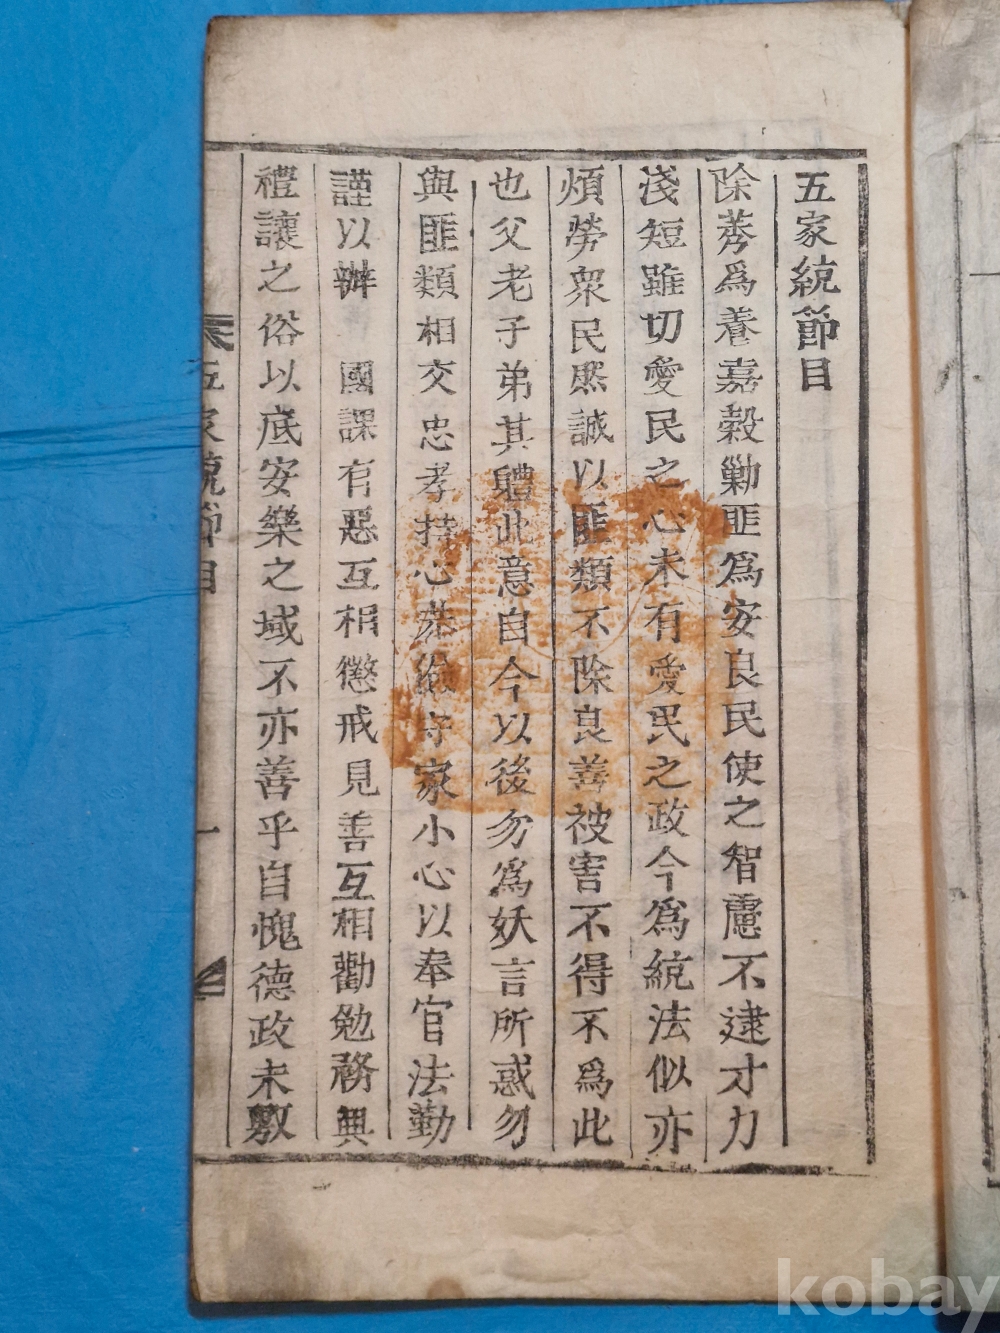 五家統節目
除莠爲養嘉穀勦匪爲安良民使之智慮不逮才力
淺短雖切愛民之心未有愛民之政今爲統法似亦
煩勞衆民然誠以匪類不除良善被害不得不爲此
也父老子弟其軆此意自今以後勿爲妖言所惑勿
與匪類相交忠孝持心恭儉守家小心以奉官法勤
謹以辦 國課有惡互相懲戒見善互相勸勉務興
禮讓之俗以底安樂之域不亦善乎自愧德政未敷
五家統節目 一
kobay